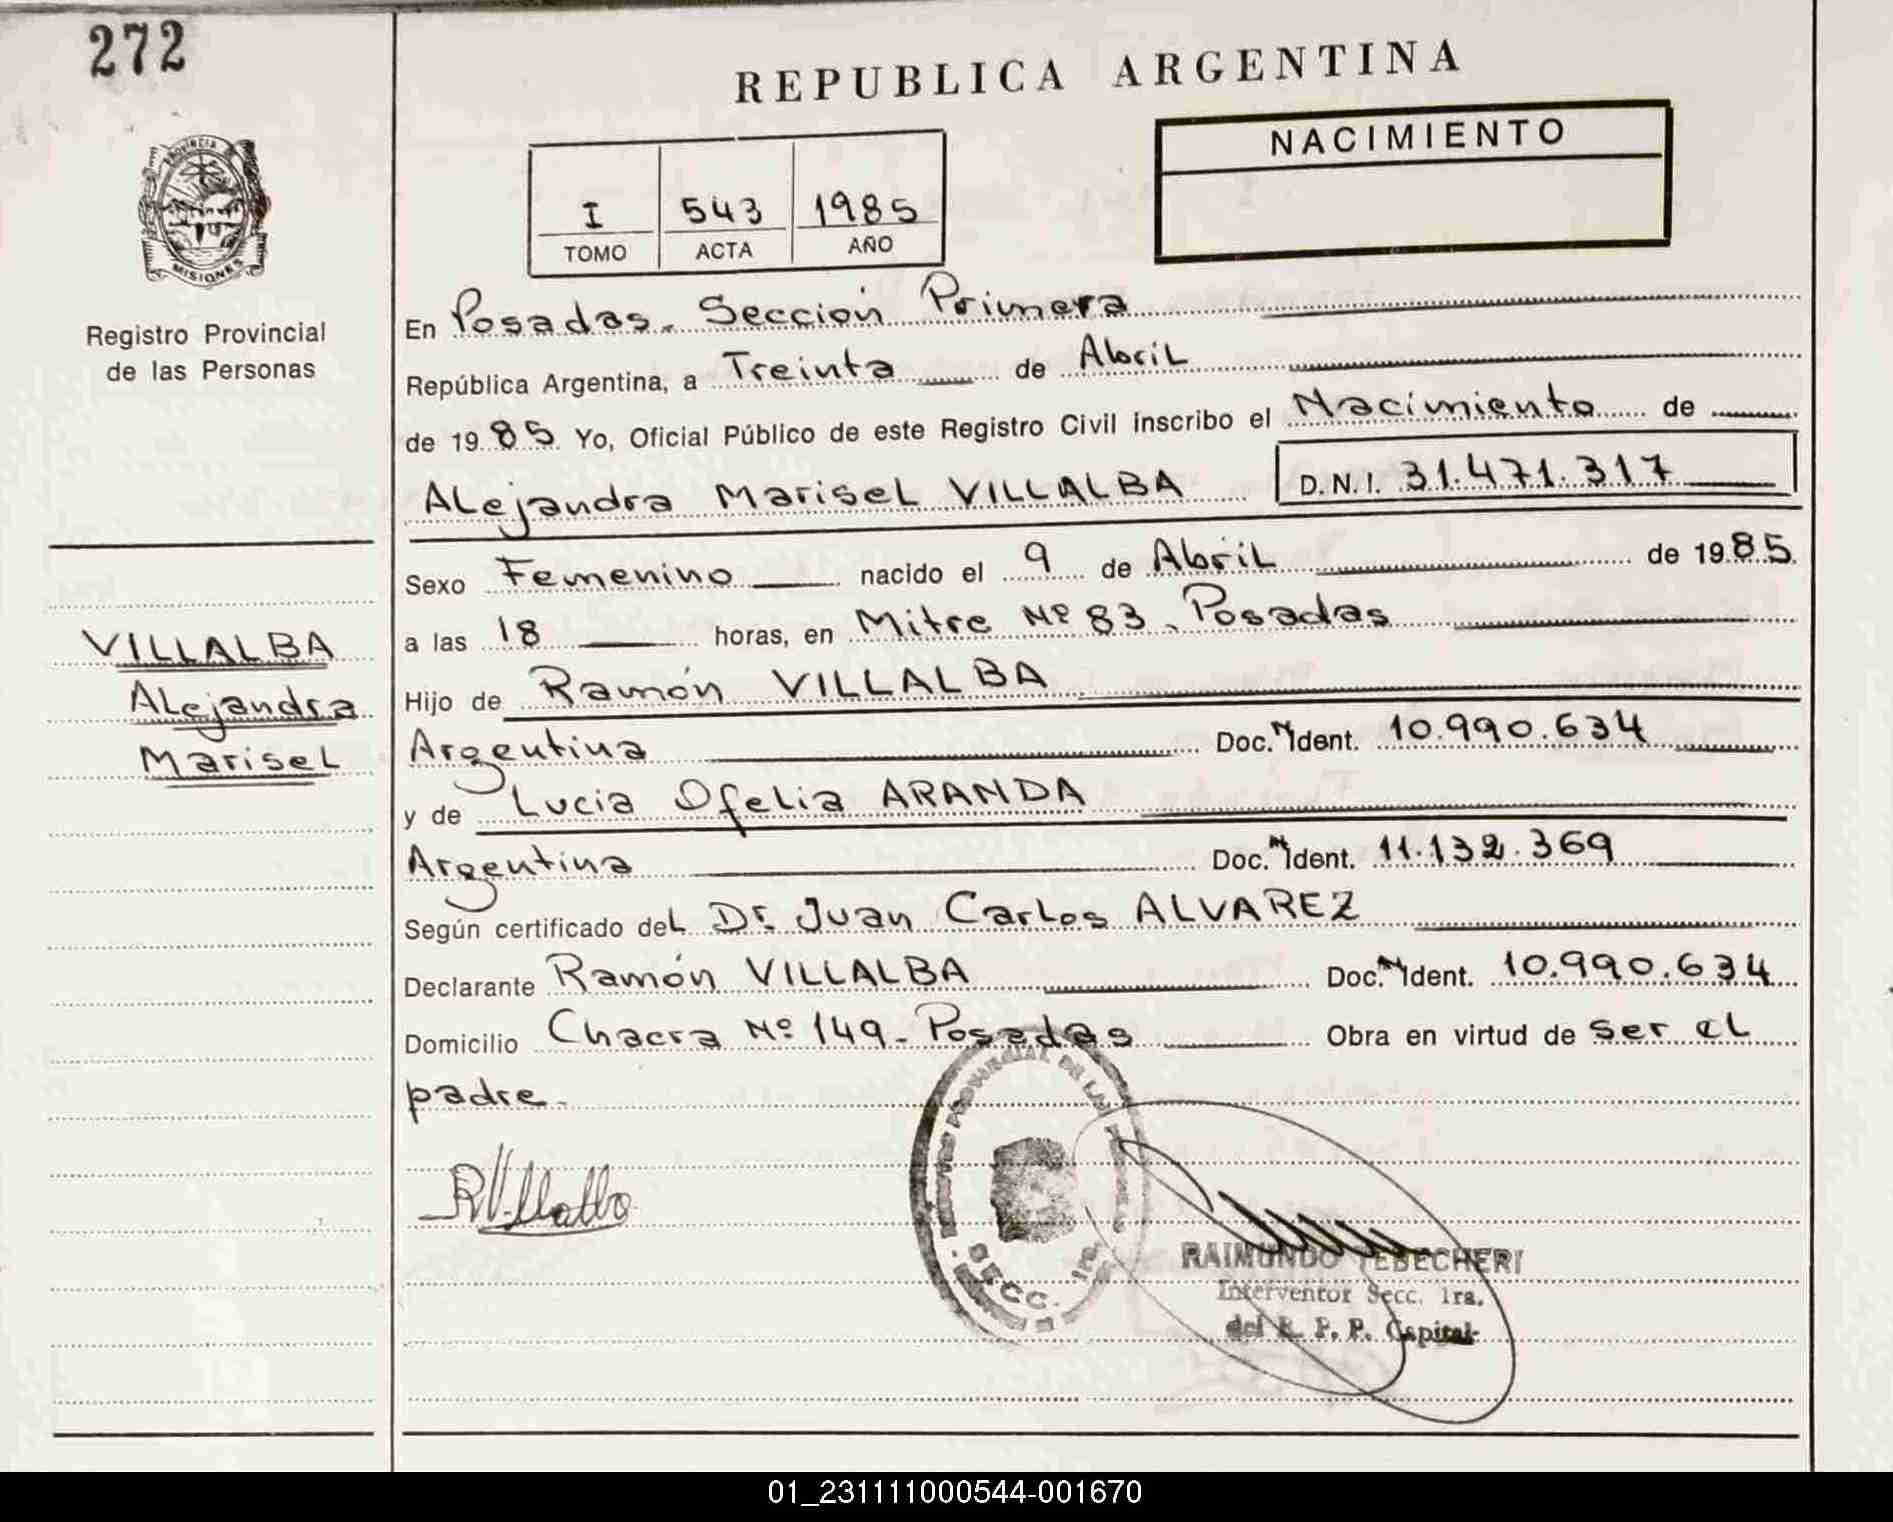 272
REPUBLICA ARGENTINA
NACIMIENTO
I 543 1985
TOMO ACTA AÑO
PROVINCIA
MISIONES
Registro Provincial
de las Personas
VILLALBA
Alejandra
Marisel
En Posadas. Sección Primera
República Argentina, a Treinta de Abril
de 1985 Yo, Oficial Público de este Registro Civil inscribo el Nacimiento de
Alejandra Marisel VILLALBA D.N.I. 31.471.317
Sexo Femenino nacido el 9 de Abril de 1985.
a las 18 horas, en Mitre Nº 83. Posadas
Hijo de Ramón VILLALBA
Argentina Doc. N Ident. 10.990.634
y de Lucia Ofelia ARANDA
Argentina Doc. N Ident. 11.132.369
Según certificado del Dr. Juan Carlos ALVAREZ
Declarante Ramón VILLALBA Doc. N Ident. 10.990.634
Domicilio Chacra Nº 149 - Posadas Obra en virtud de ser el
padre.
R Villalba
PROVINCIAL DE LAS
SECC. 1ra.
RAIMUNDO TEBECHERI
Interventor Secc. 1ra.
del R. P. P. Capital
01_231111000544-001670